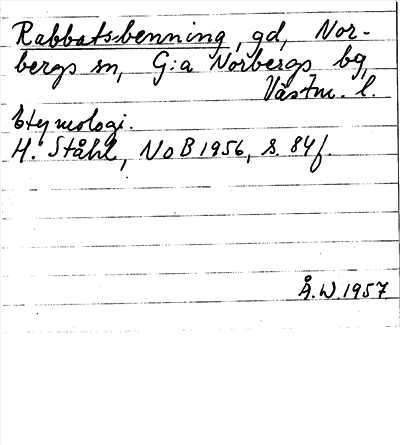 Rabbatsbenning, gd, Nor-
bergs sn, G:a Norbergs bg,
Västm. l.
Etymologi.
H. Ståhl, NoB 1956, s. 84f.
Å.W. 1957